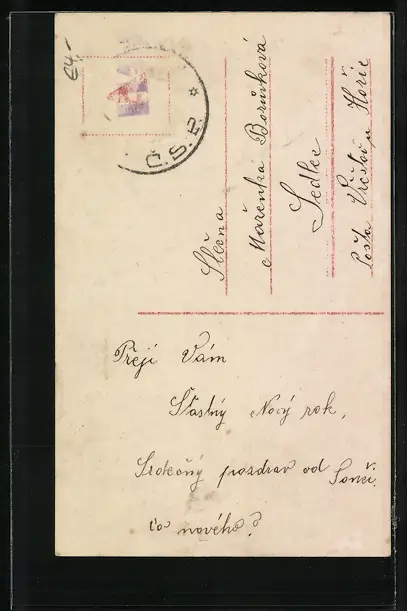 €4,-
Č.S.P.
Slečna
Mařenka Borůvková
Sedlec
Pošta u Hořic
Přeji Vám
Šťastný Nový rok,
Srdečný pozdrav od
Co nového?